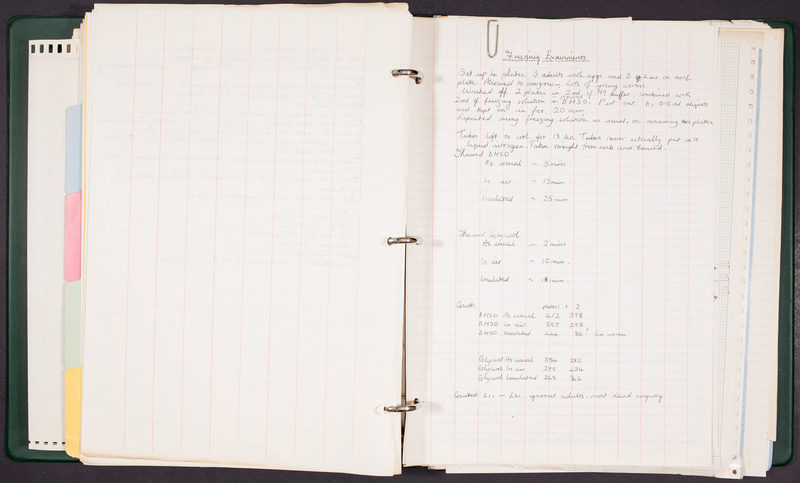 Freezing Experiments
Set up 4 plates. 3 adults with eggs and 3 in each
plate. Allowed to overgrow, lots of young worms
Washed off 2 plates in 2ml of M9 buffer, combined with
2ml of freezing solution + DMSO. Put out 6, 0.5ml aliquots
and kept on ice for 20 min
Repeated using freezing solution as usual, on remaining two plates
Tubes left to cool for 18 hrs. Tubes never actually put into
liquid nitrogen. Taken straight from neck and thawed.
Thawed DMSO
As usual ~ 5min
In air ~ 15min
Insulated ~ 25min
Thawed Glycerol
As usual ~ 2 mins
In air ~ 10 min.
Insulated ~ 18 min.
Counts plates 1 + 2
DMSO As usual 412 378
DMSO In air 337 293
DMSO Insulated 36?
Glycerol As usual 334 280
Glycerol In air 295 424
Glycerol Insulated 265 366
Counted L1s → L3s, ignored adults, most dead anyway.